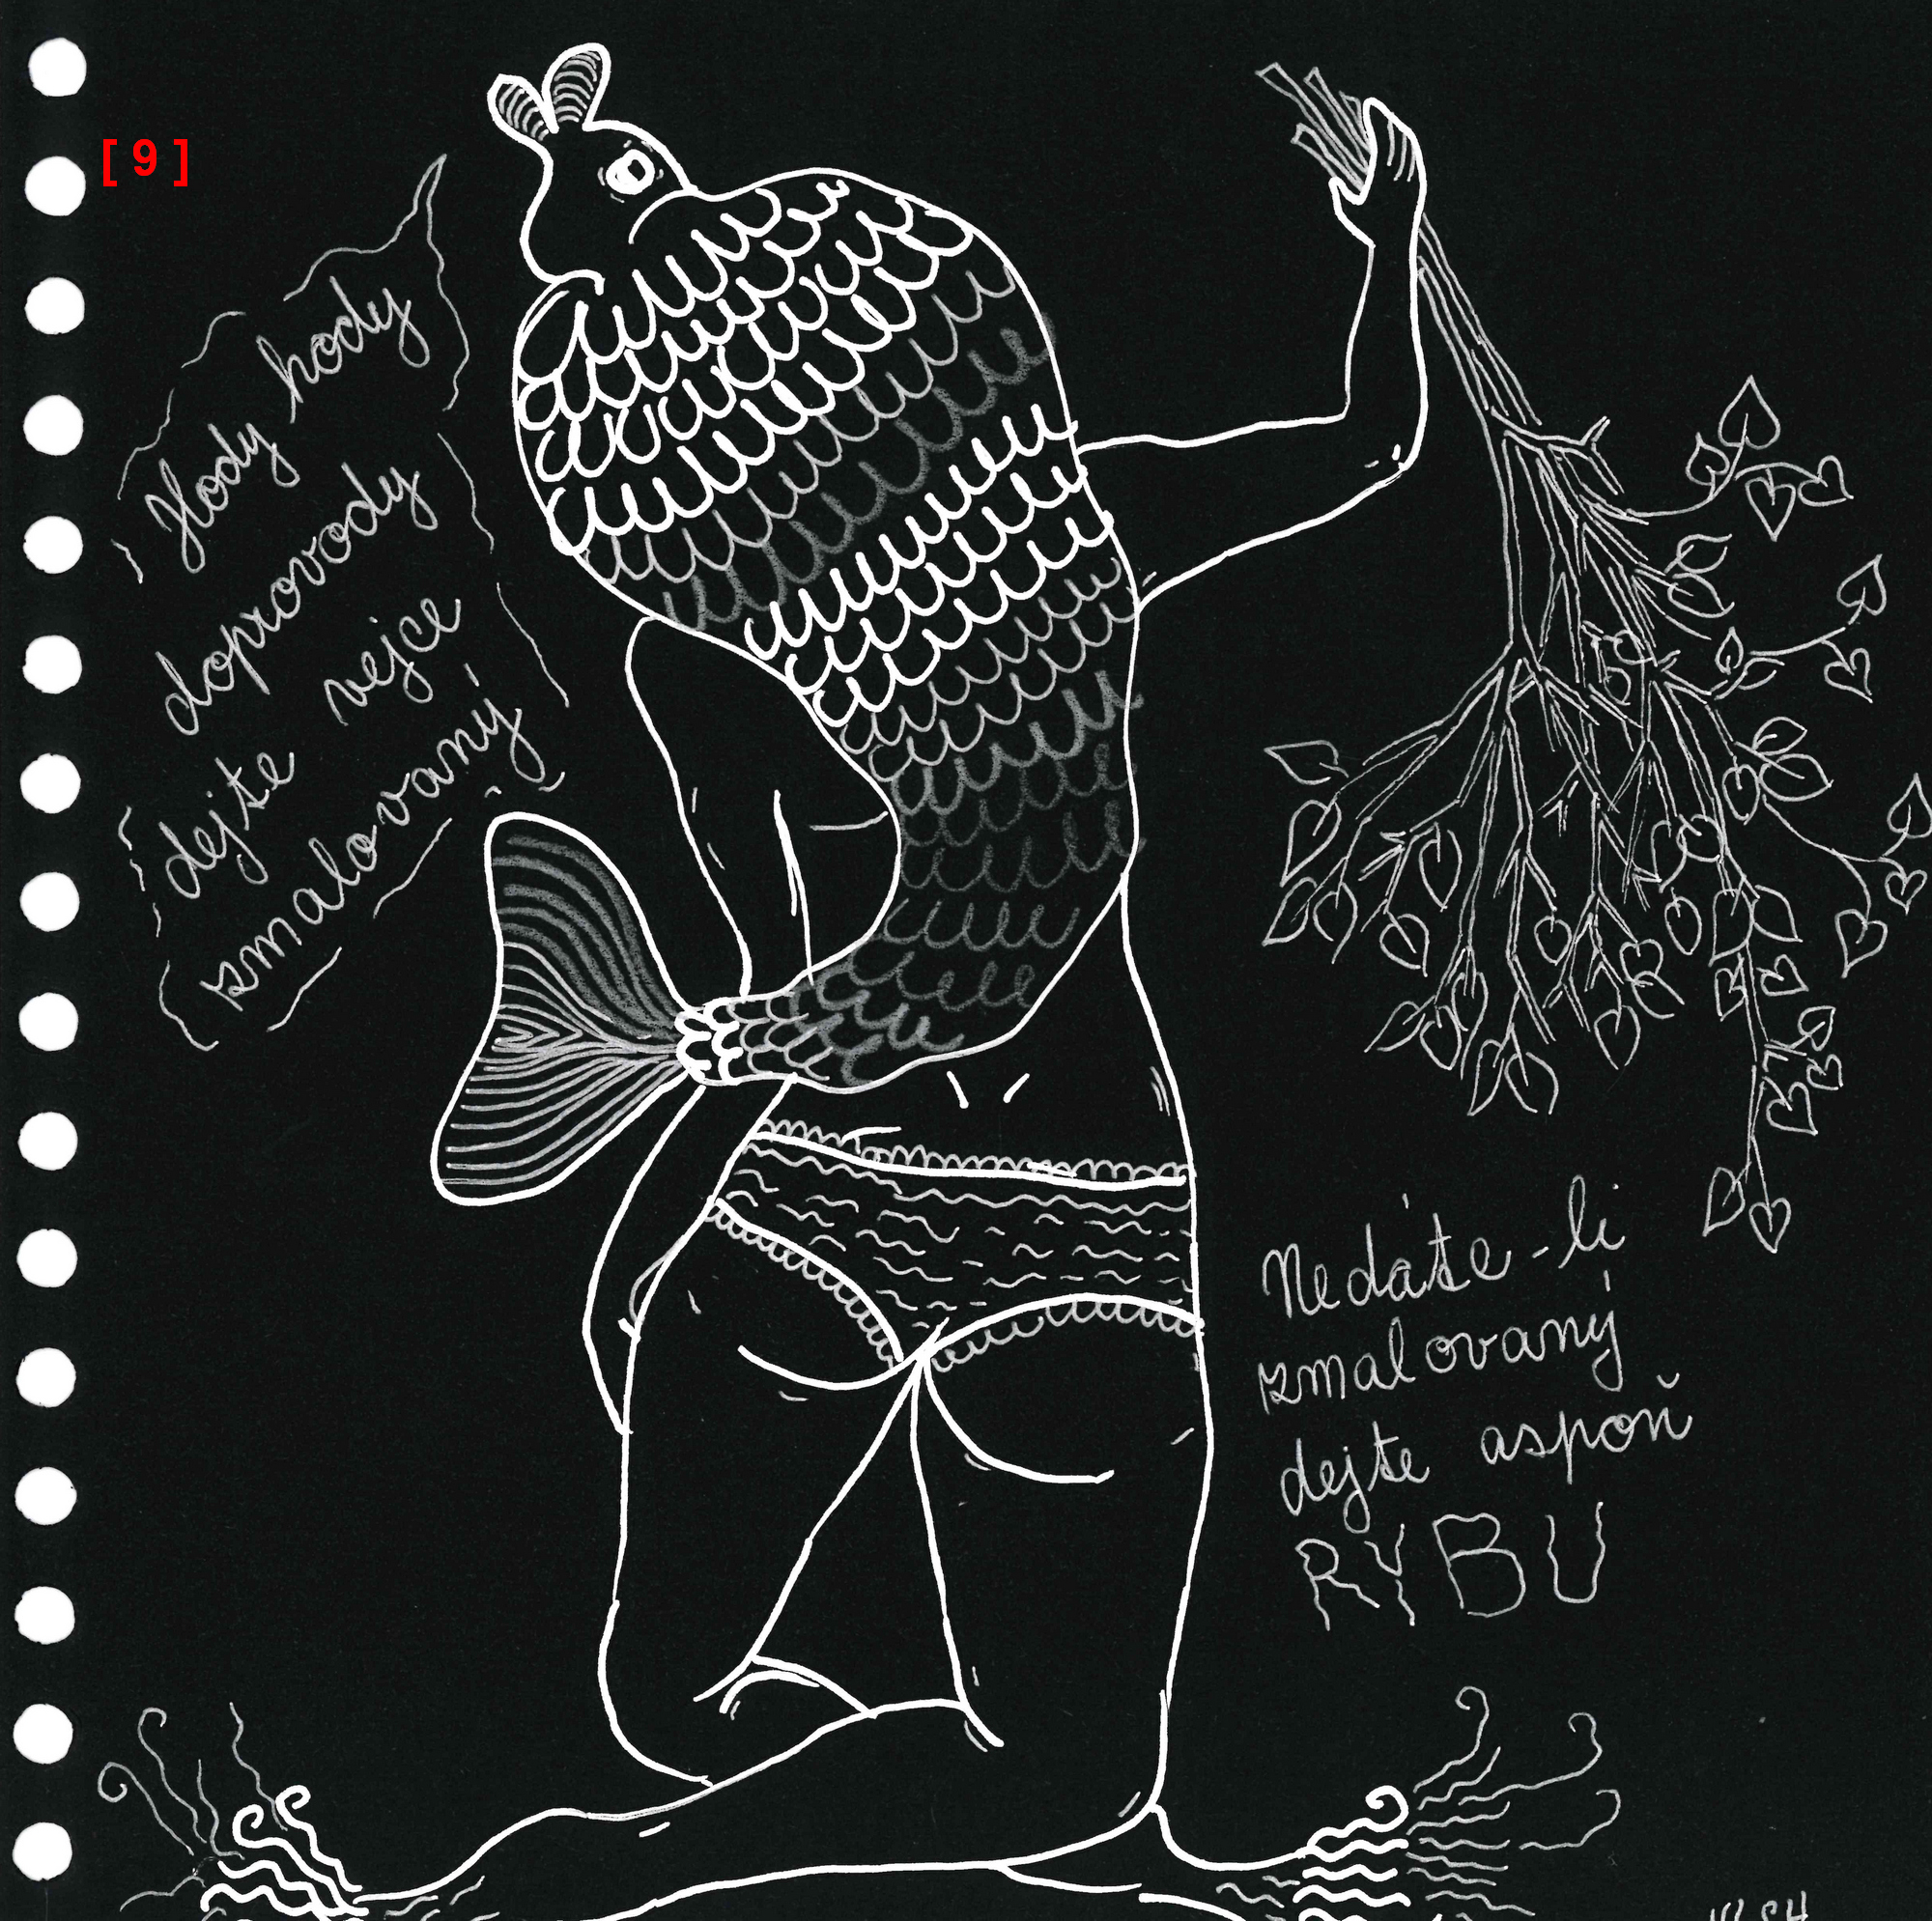 [ 9 ]
Hody hody
doprovody
dejte vejce
zmalovaný
Nedáte-li
zmalovaný
dejte aspoň
RYBU